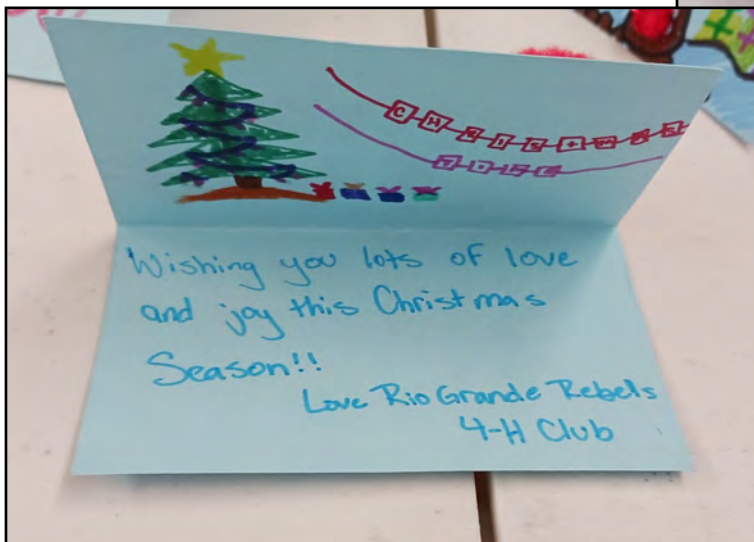 CHRIStMAS
Wishing you lots of love
and joy this Christmas
Season!!
Love Rio Grande Rebels
4-H Club